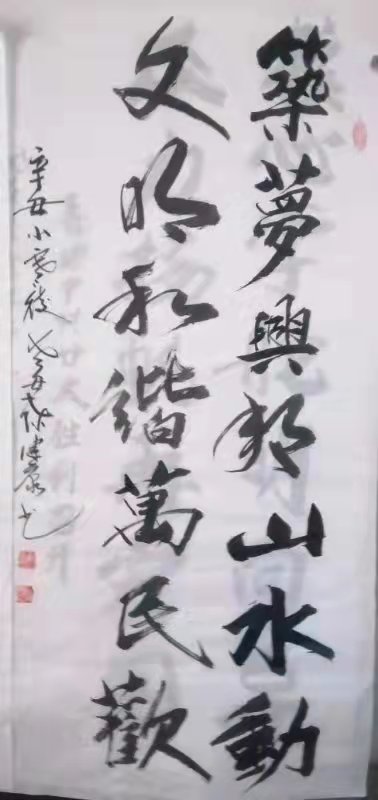 築夢興邦山水動
文明和諧萬民歡
辛丑小寒後 健康書